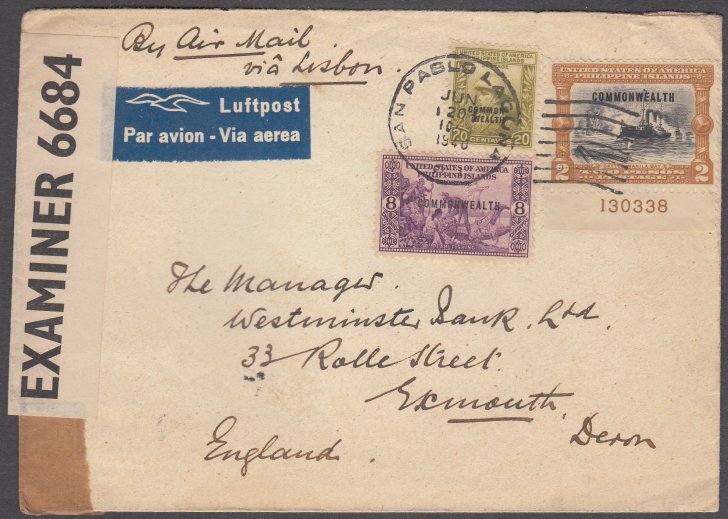 By Air Mail
viâ Lisbon.
Luftpost
Par avion - Via aerea
EXAMINER 6684
UNITED STATES OF AMERICA
COMMON
WEALTH
20 CENTAVOS 20
SAN PABLO LAGUNA
JUN
1940
UNITED STATES OF AMERICA
PHILIPPINE ISLANDS
COMMONWEALTH
2 TWO PESOS 2
POSTAGE
130338
UNITED STATES OF AMERICA
PHILIPPINE ISLANDS
COMMONWEALTH
8 8
PEARL FISHING
The Manager.
Westminster Bank, Ltd.
33 Rolle Street.
Exmouth,
Devon
England.